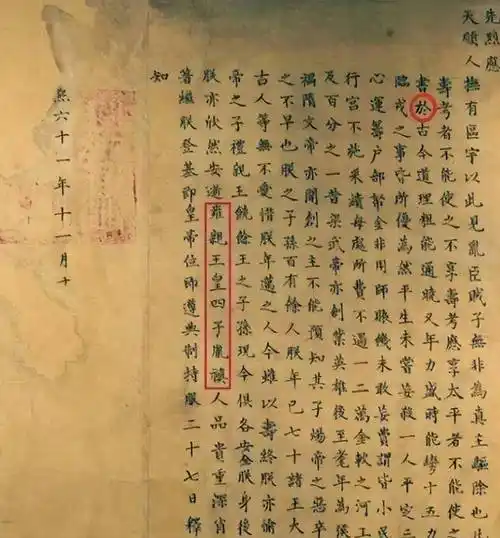 先烈應
天順人撫有區宇以此見亂臣賊子無非為真主驅除也此
壽考者不能使之不享壽考應享太平者不能使之
書於古今道理粗能通曉又年力盛時能彎十五力
臨戎之事皆所優為然平生未嘗妄殺一人平定三
心運籌户部帑金非用師賑饑未敢妄費謂皆小民
行宮不施采繢每處所費不過一二萬金較之河工
及百分之一昔梁武帝亦創業英雄後至耄年為侯
禍隋文帝亦開創之主不能預知其子煬帝之惡卒
之不早也朕之子孫百有餘人朕年已七十諸王大
古人等無不愛惜朕年邁之人今雖以壽終朕亦愉
帝之子禮親王饒餘王之子孫現今俱各安全朕身後
朕亦欣然安逝雍親王皇四子胤禛人品貴重深肖
著繼朕登基即皇帝位即遵典制持服二十七日釋
知
熙六十一年十一月十